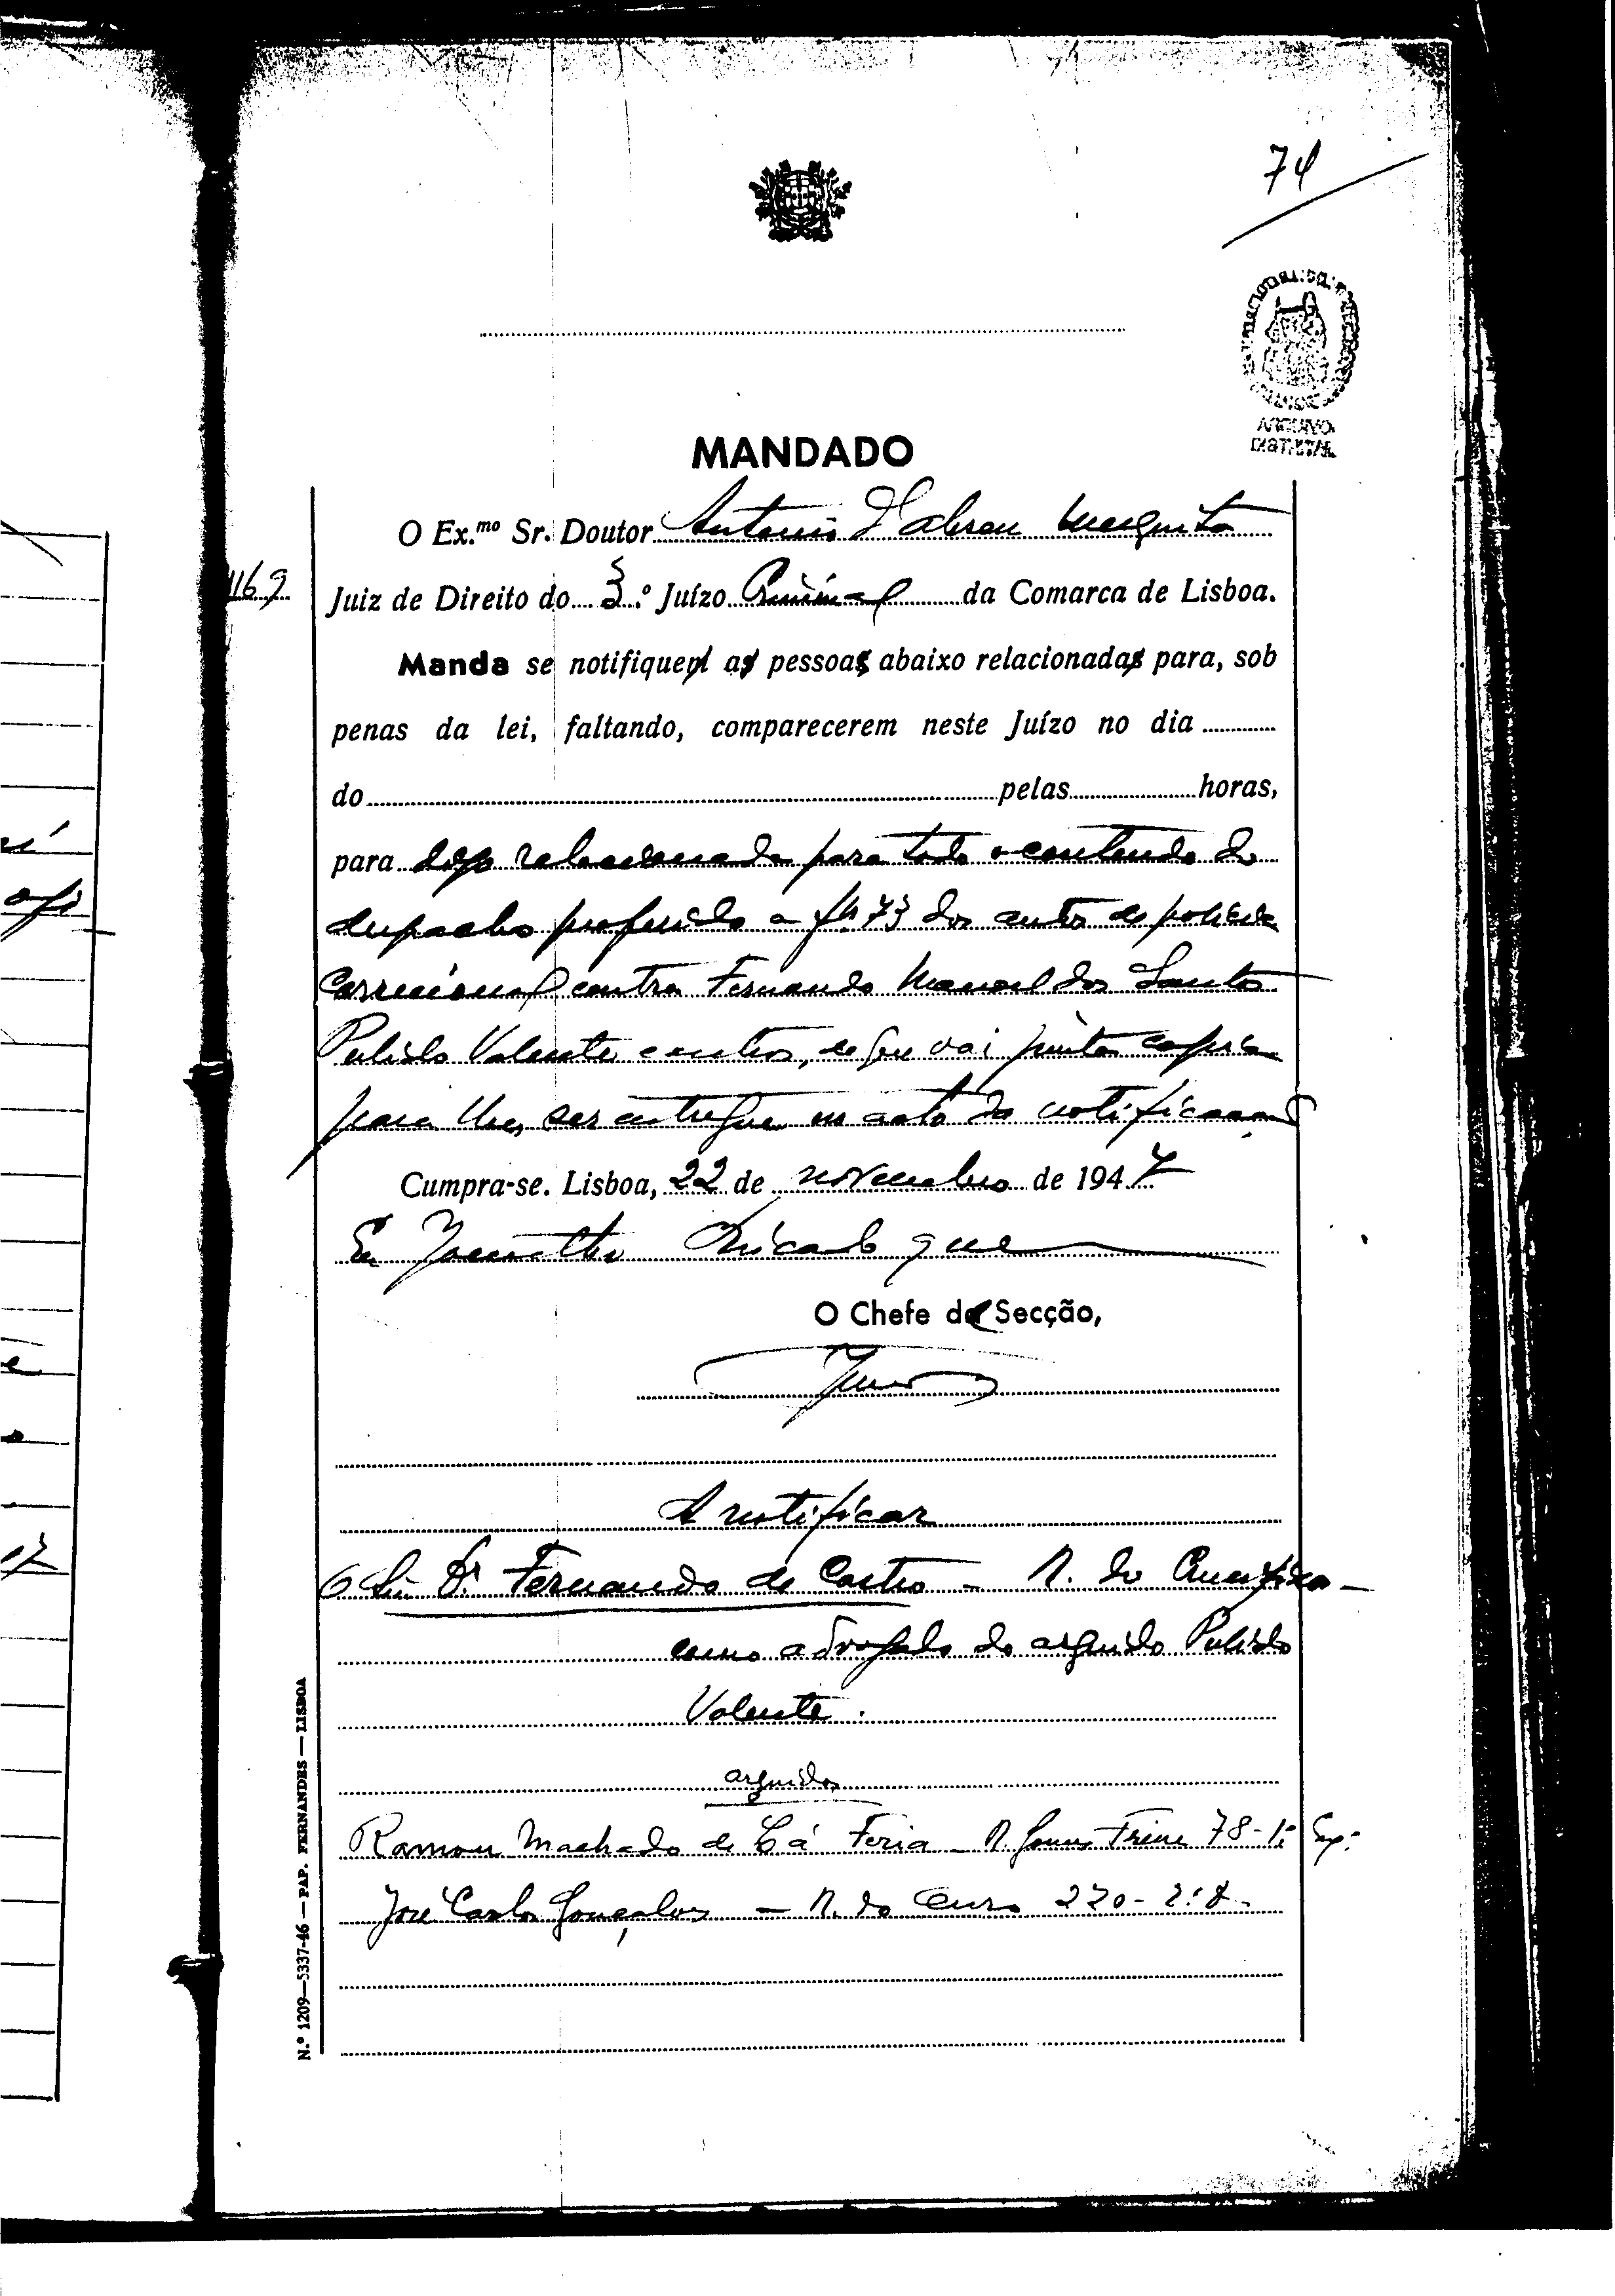 74
ARQUIVO
DISTRITAL
MANDADO
O Ex.mo Sr. Doutor Antonio d'Abreu Mesquita
1169
Juiz de Direito do 3.º Juízo Criminal da Comarca de Lisboa.
Manda se notifiquem as pessoas abaixo relacionadas para, sob
penas da lei, faltando, comparecerem neste Juízo no dia
do pelas horas,
para relacionado para todo o conteudo do
despacho proferido a fls. 73 dos autos de policia
correcional contra Fernando Manoel dos Santos
Pulido Valente e outros, de que vai junta copia
para lhes ser entregue no acto da notificação
Cumpra-se. Lisboa, 22 de novembro de 1947
Eu
O Chefe da Secção,
A notificar
O Sr. Dr. Fernando de Castro - R. do Crucifixo -
como advogado do arguido Pulido
Valente.
arguidos
Ramon Machado de Lá Feria - R. Gomes Freire 78-1.º Esq.
José Carlos Gonçalves - R. do Ouro 220-2.º D.
N.º 1209—5337-46 — PAP. FERNANDES — LISBOA